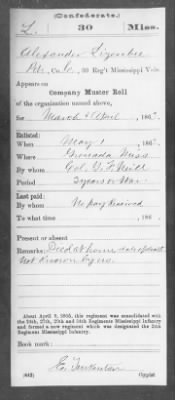 (Confederate.)
L. 30 Miss.
Alexander
Pvt., Co. C, 30 Reg't Mississippi Vols.
Appears on
Company Muster Roll
of the organization named above,
for March & April, 186
Enlisted:
When May 1, 186
Where Grenada Miss
By whom Col. G. F. Neill
Period 3 years or War
Last paid:
By whom No pay Received
To what time , 186
Present or absent
Remarks: Died at home date of death
Not Known by us.
About April 9, 1865, this regiment was consolidated with
the 24th, 27th, 29th and 34th Regiments Mississippi Infantry
and formed a new regiment which was designated the 24th
Regiment Mississippi Infantry.
Book mark:
(642) Copyist